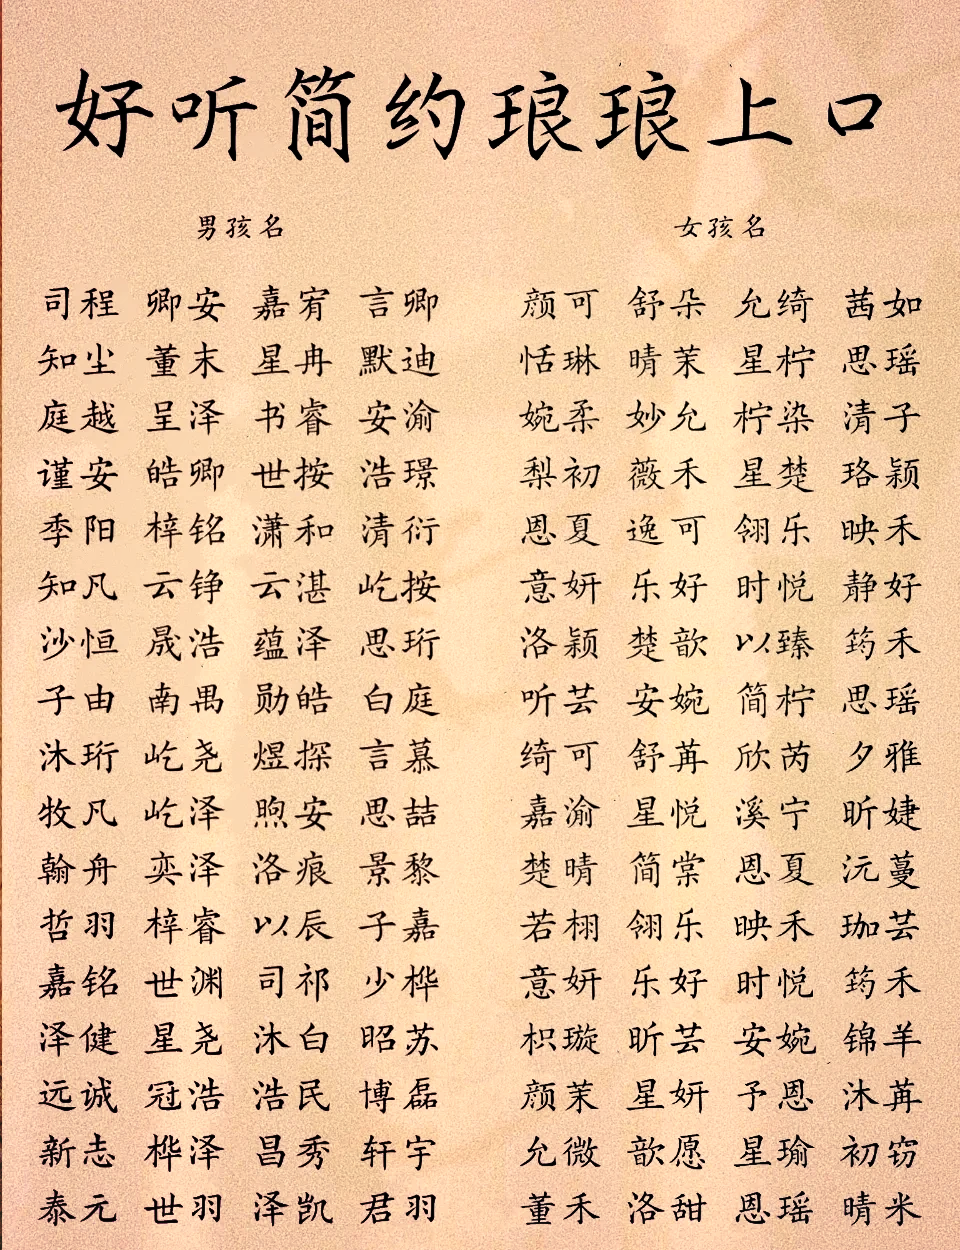 好听简约琅琅上口
男孩名 女孩名
司程 卿安 嘉宥 言卿 颜可 舒朵 允绮 茜如
知尘 董末 星冉 默迪 恬琳 晴茉 星柠 思瑶
庭越 呈泽 书睿 安渝 婉柔 妙允 柠染 清子
谨安 皓卿 世按 浩璟 梨初 薇禾 星楚 珞颖
季阳 梓铭 潇和 清衍 恩夏 逸可 翎乐 映禾
知凡 云铮 云湛 屹按 意妍 乐好 时悦 静好
沙恒 晟浩 蕴泽 思珩 洛颖 楚歆 以臻 筠禾
子由 南禺 勋皓 白庭 听芸 安婉 简柠 思瑶
沐珩 屹尧 煜探 言慕 绮可 舒苒 欣芮 夕雅
牧凡 屹泽 煦安 思喆 嘉渝 星悦 溪宁 昕婕
翰舟 奕泽 洛痕 景黎 楚晴 简棠 恩夏 沅蔓
哲羽 梓睿 以辰 子嘉 若栩 翎乐 映禾 珈芸
嘉铭 世渊 司祁 少桦 意妍 乐好 时悦 筠禾
泽健 星尧 沐白 昭苏 枳璇 昕芸 安婉 锦羊
远诚 冠浩 浩民 博磊 颜茉 星妍 予恩 沐苒
新志 桦泽 昌秀 轩宇 允微 歆愿 星瑜 初窈
泰元 世羽 泽凯 君羽 董禾 洛甜 恩瑶 晴米